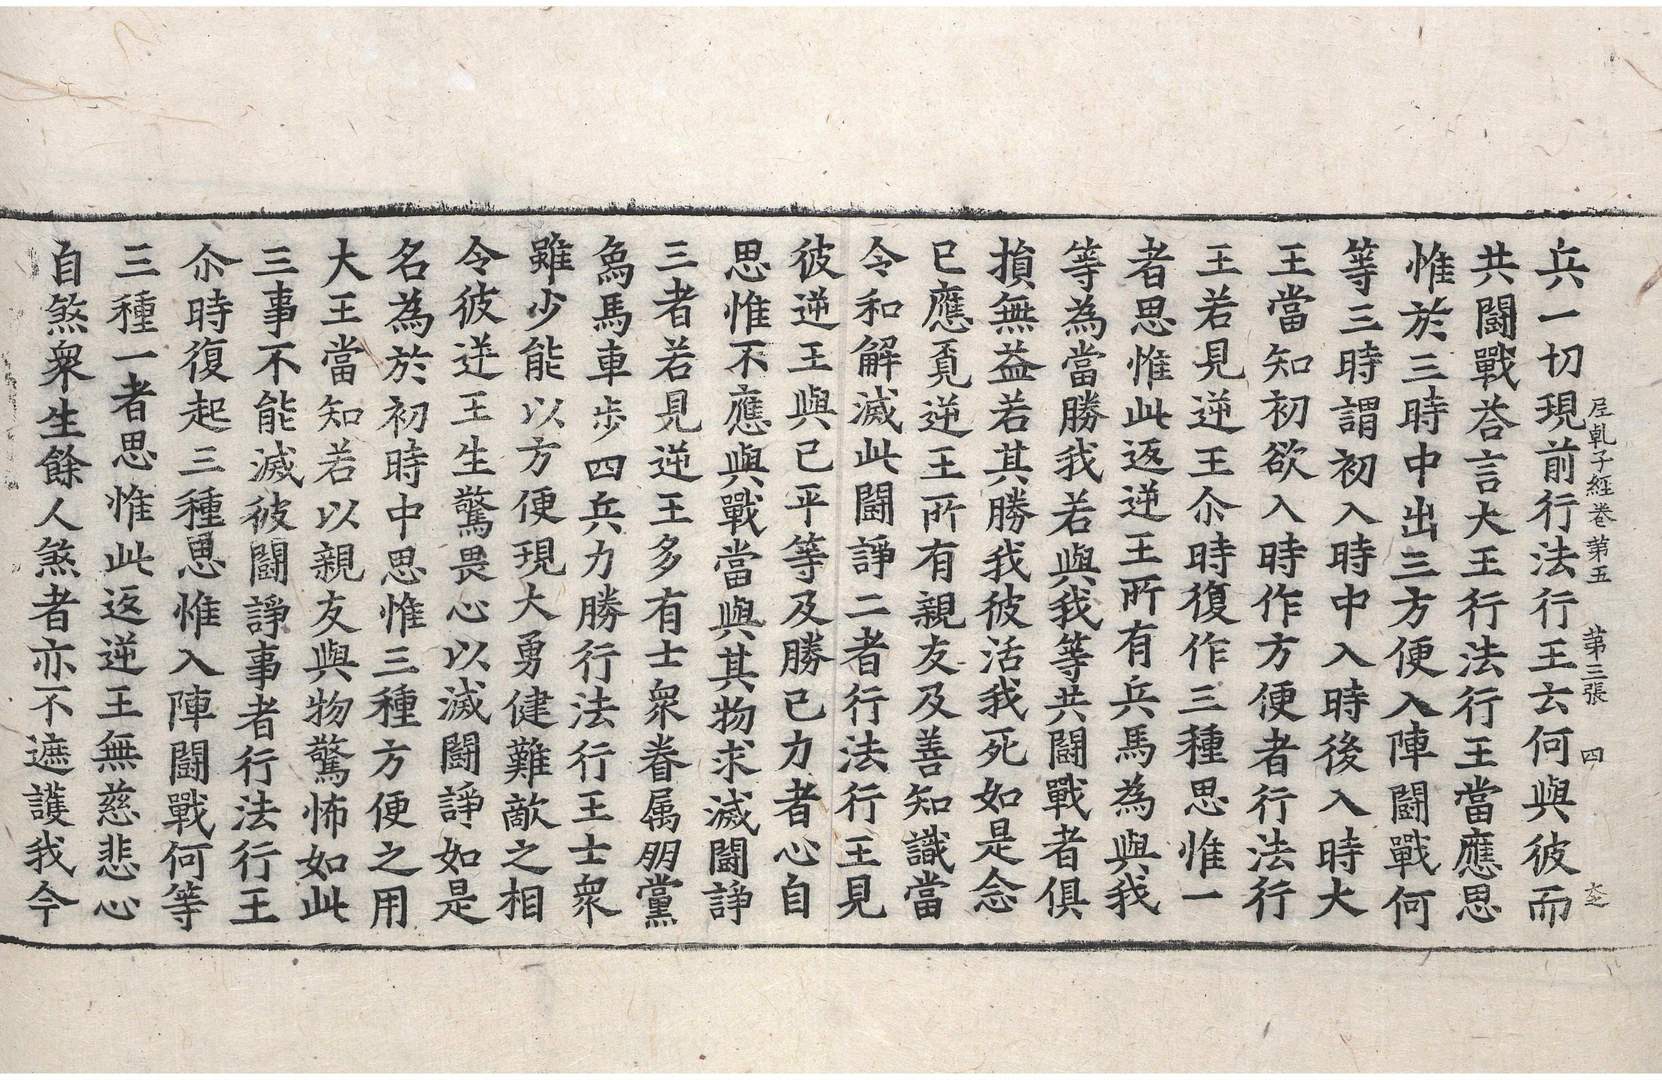 𡰱乹子經卷第五 第三張 四
兵一切現前行法行王云何與彼而
共鬪戰荅言大王行法行王當應思
惟於三時中出三方便入陣鬪戰何
等三時謂初入時中入時後入時大
王當知初欲入時作方便者行法行
王若見逆王尒時復作三種思惟一
者思惟此返逆王所有兵馬為與我
等為當勝我若與我等共鬪戰者俱
損無益若其勝我彼活我死如是念
已應覓逆王所有親友及善知識當
令和解滅此鬪諍二者行法行王見
彼逆王與已平等及勝已力者心自
思惟不應與戰當與其物求滅鬪諍
三者若見逆王多有士衆眷属朋黨
象馬車步四兵力勝行法行王士衆
雖少能以方便現大勇健難敵之相
令彼逆王生驚畏心以滅鬪諍如是
名為於初時中思惟三種方便之用
大王當知若以親友與物驚怖如此
三事不能滅彼鬪諍事者行法行王
尒時復起三種思惟入陣鬪戰何等
三種一者思惟此返逆王無慈悲心
自煞衆生餘人煞者亦不遮護我今